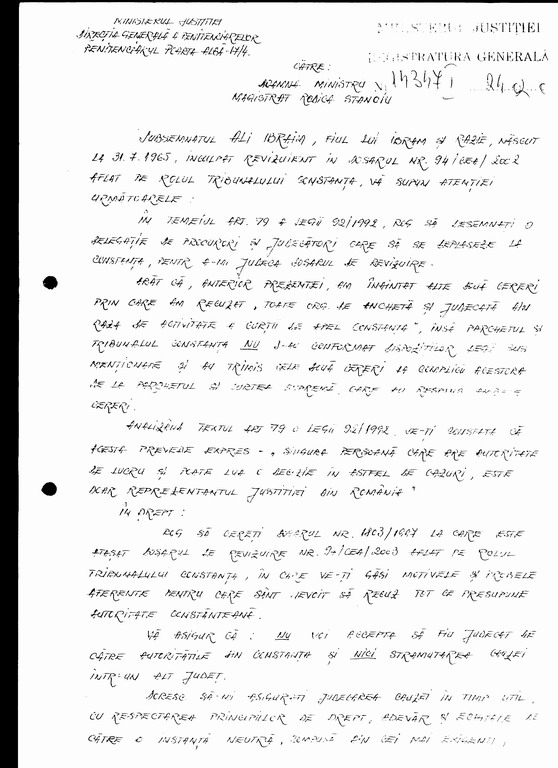 MINISTERUL JUSTITIEI
DIRECTIA GENERALĂ A PENITENCIARELOR
PENITENCIARUL POARTA ALBĂ
MINISTERUL JUSTIȚIEI
REGISTRATURA GENERALĂ
14347 I 24 02
CĂTRE:
DOAMNA MINISTRU
MAGISTRAT RODICA STANOIU
SUBSEMNATUL ALI IBRAIM, FIUL LUI IBRAM ȘI RAZIE, NĂSCUT
LA 31.7.1965, INCULPAT REVIZUIENT ÎN DOSARUL NR. 94/CEA/2002
AFLAT PE ROLUL TRIBUNALULUI CONSTANȚA, VĂ SUPUN ATENȚIEI
URMĂTOARELE:
ÎN TEMEIUL ART. 79 A LEGII 92/1992, ROG SĂ DESEMNATI O
DELEGAȚIE DE PROCURORI ȘI JUDECĂTORI CARE SĂ SE DEPLASEZE LA
CONSTANȚA, PENTR A-MI JUDECA DOSARUL DE REVIZUIRE.
ARĂT CĂ, ANTERIOR PREZENTEI, AM ÎNAINTAT ALTE DOUĂ CERERI
PRIN CARE AM RECUZAT, TOATE ORG. DE ANCHETĂ ȘI JUDECATĂ DIN
RAZA DE ACTIVITATE A CURTII DE APEL CONSTANȚA", ÎNSĂ PARCHETUL ȘI
TRIBUNALUL CONSTANȚA NU S-AU CONFORMAT DISPOZIȚIILOR LEGII SUS
MENȚIONATE ȘI AU TRIMIS CELE DOUĂ CERERI LA COMPLICII ACESTORA
DE LA PARCHETUL ȘI CURTEA SUPREMĂ, CARE AU RESPINS
CERERI.
ANALIZÂND TEXTUL ART 79 A LEGII 92/1992, VE-ȚI CONSTATA CĂ
ACESTA PREVEDE EXPRES - „SINGURA PERSOANĂ CARE ARE AUTORITATE
DE LUCRU ȘI POATE LUA O DECIZIE ÎN ASTFEL DE CAZURI, ESTE
DOAR REPREZENTANTUL JUSTITIEI DIN ROMÂNIA"
ÎN DREPT:
ROG SĂ CERETI DOSARUL NR. 1803/1997 LA CARE ESTE
ATAȘAT DOSARUL DE REVIZUIRE NR. 94/CEA/2003 AFLAT PE ROLUL
TRIBUNALULUI CONSTANȚA, ÎN CARE VE-ȚI GĂSI MOTIVELE ȘI PROBELE
AFERENTE PENTRU CARE SÂNT NEVOIT SĂ RECUZ TOT CE PRESUPUNE
AUTORITATE CONSTĂNTEANĂ.
VĂ ASIGUR CĂ: NU VOI ACCEPTA SĂ FIU JUDECAT DE
CĂTRE AUTORITĂȚILE DIN CONSTANȚA ȘI NICI STRAMUTAREA CAUZEI
ÎNTR-UN ALT JUDEȚ.
DORESC SĂ-MI ASIGURATI JUDECAREA CAUZEI ÎN TIMP UTIL,
CU RESPECTAREA PRINCIPIILOR DE DREPT, ADEVĂR ȘI ECHITATE DE
CĂTRE O INSTANȚĂ NEUTRĂ, COMPUSĂ DIN CEI MAI EXIGENTI,